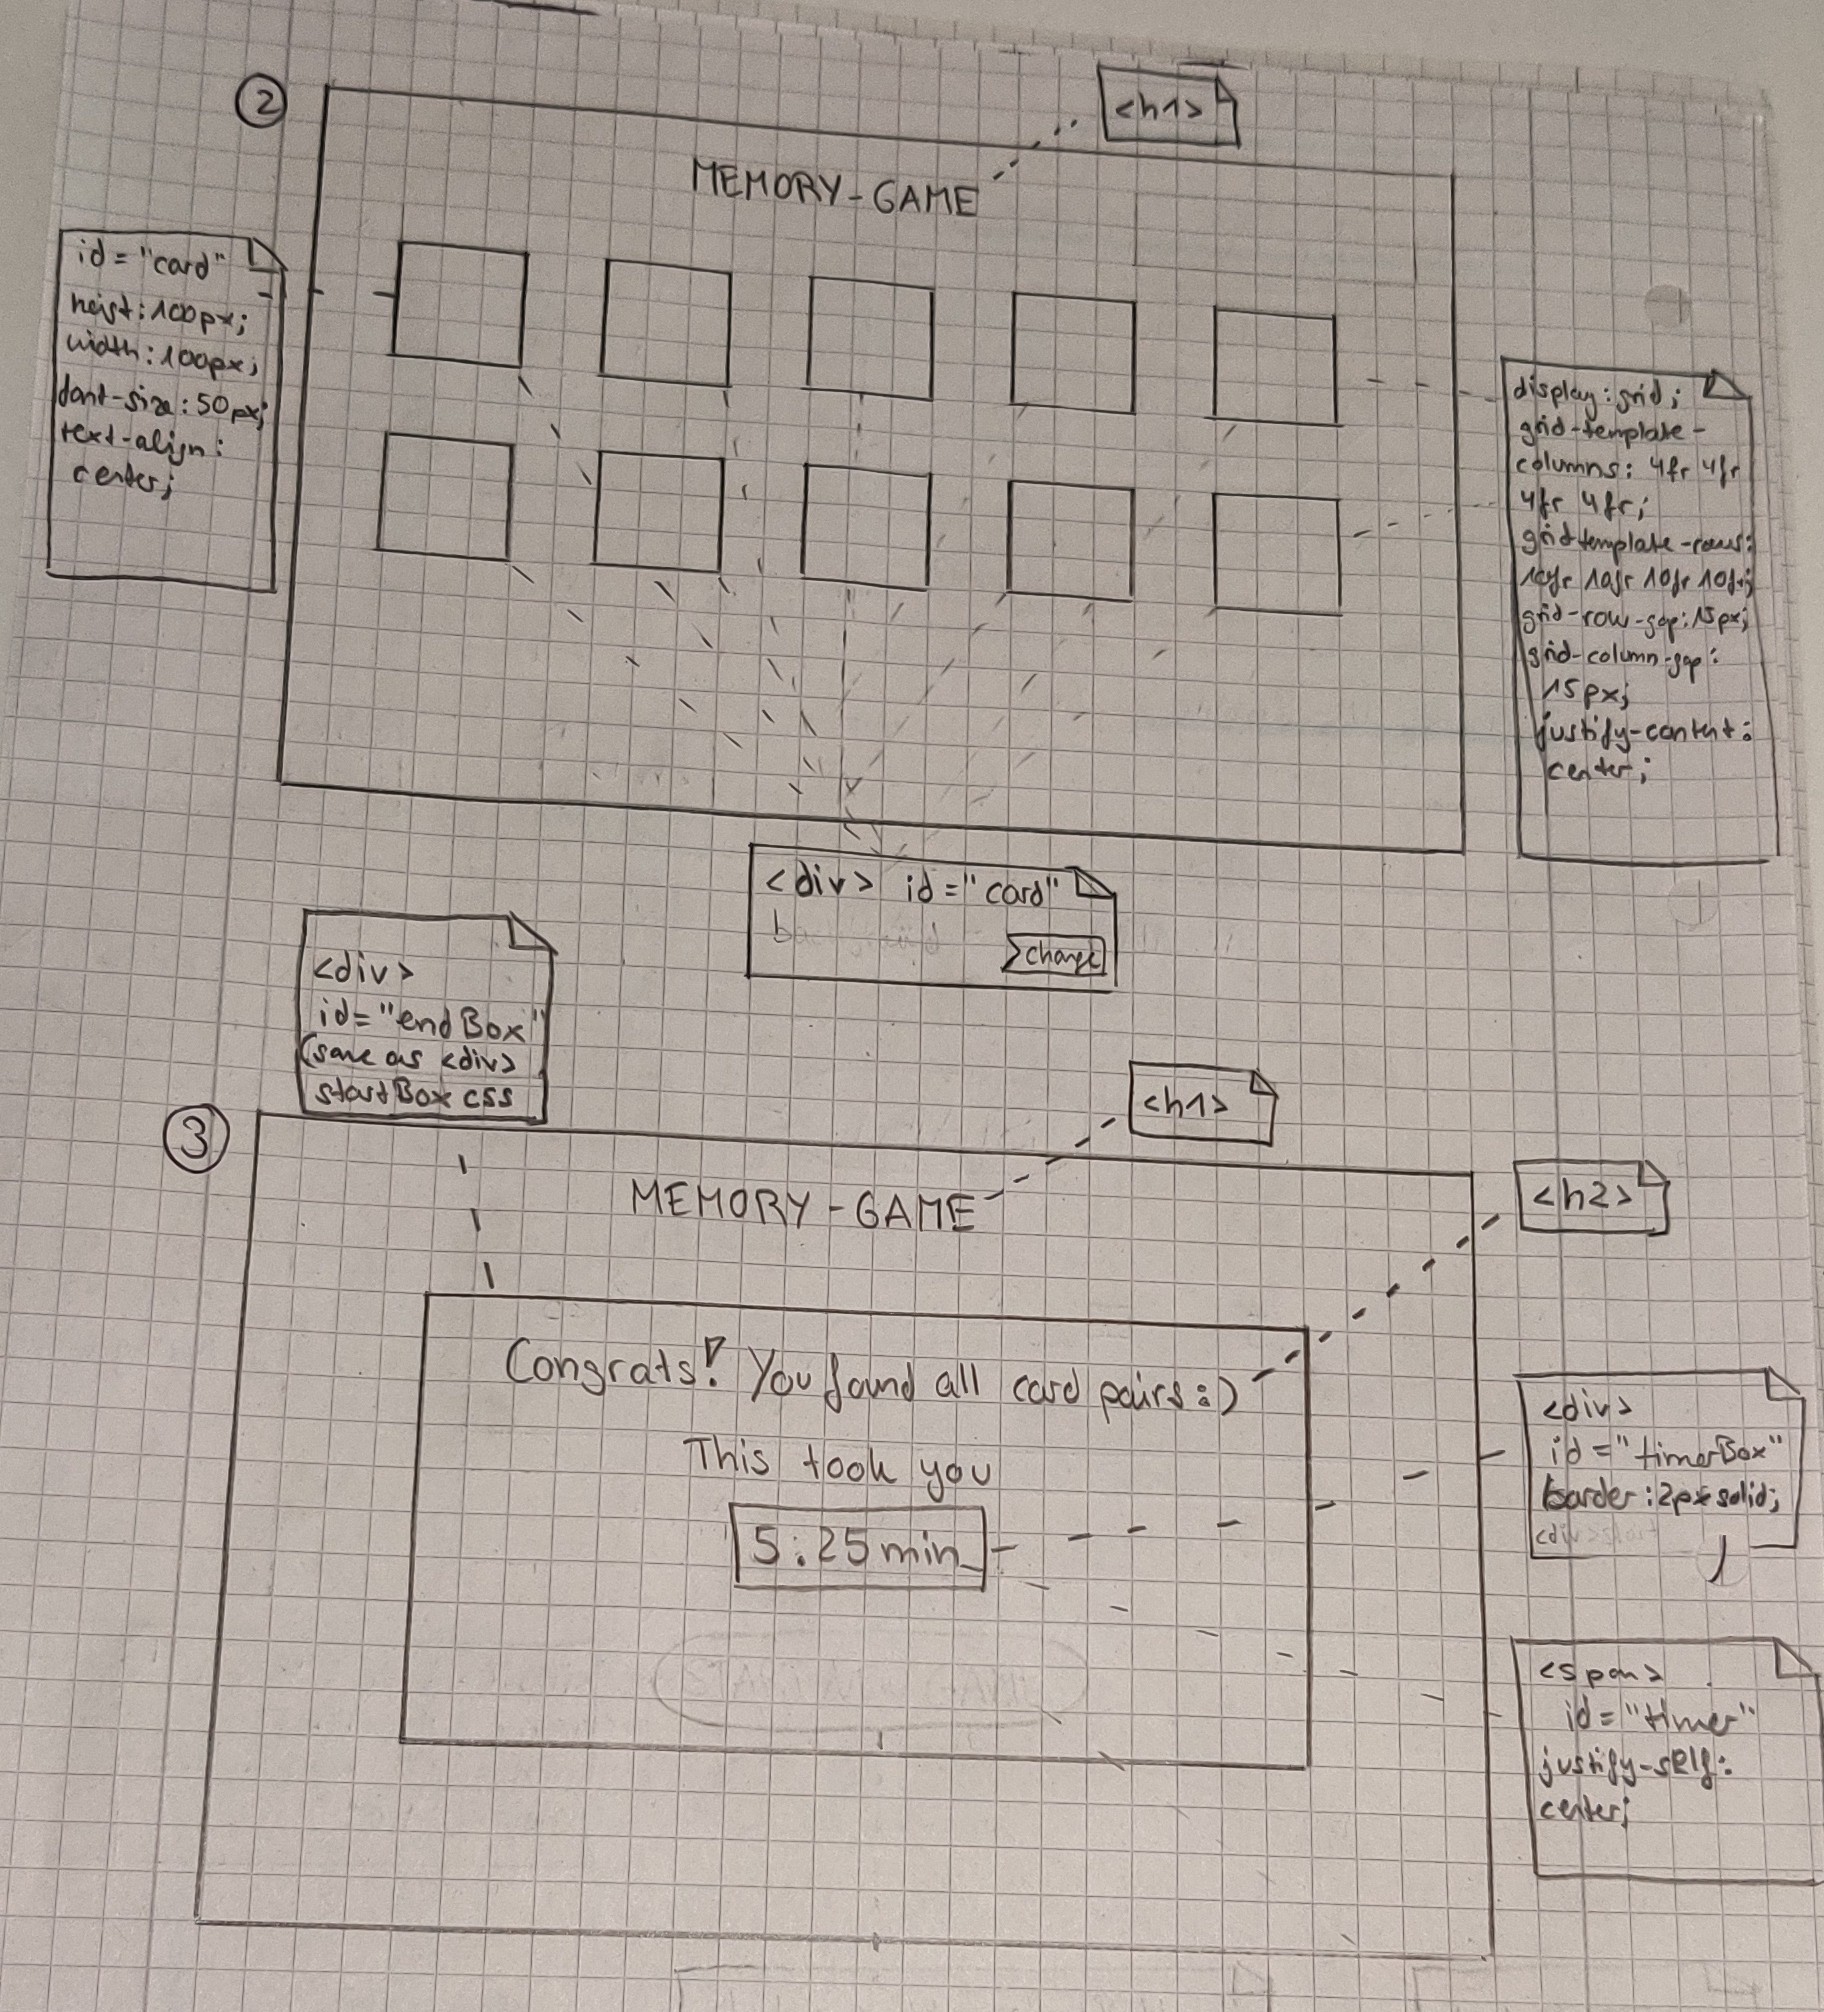 2
<h1>
MEMORY-GAME
id="card"
heigt: 100px;
width: 100px;
font-size: 50px;
text-align:
center;
display: grid;
grid-template-
columns: 4fr 4fr
4fr 4fr;
grid template-rows:
10fr 10fr 10fr 10fr;
grid-row-gap: 15px;
grid-column-gap:
15px;
justify-content:
center;
<div> id="card"
change
<div>
id="endBox"
(same as <div>
startBox css
3
<h1>
MEMORY-GAME
<h2>
Congrats! You found all card pairs :)
This took you
5:25 min
<div>
id="timerBox"
border: 2px solid;
<span>
id="timer"
justify-self:
center;